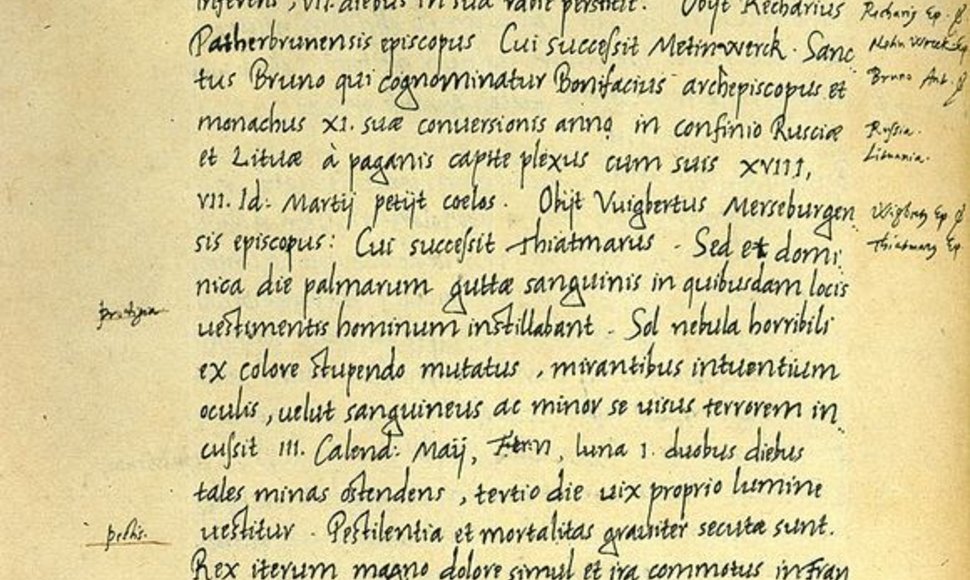 inferens, VII. diebus in sua rabie perstitit. Obijt Recharius
Patherbrunensis episcopus Cui succeſsit Metinwerck. Sanc
tus Bruno qui cognominatur Bonifacius archepiscopus et
monachus XI. suæ conversionis anno in confinio Rusciæ
et Lituæ à paganis capite plexus cum suis XVIII,
VII. Id: Martij petijt coelos. Obijt Vuigbertus Merseburgen
sis episcopus: Cui succeſsit Thiatmarus. Sed et domi
nica die palmarum guttæ sanguinis in quibusdam locis
uestimentis hominum instillabant. Sol nebula horribili
ex colore stupendo mutatus, mirantibus intuentium
oculis, uelut sanguineus ac minor se uisus terrorem in
cuſsit III. Calend: Maij, luna I. duobus diebus
tales minas ostendens, tertio die uix proprio lumine
uestitur. Pestilentia et mortalitas grauiter secutæ sunt.
Rex iterum magno dolore simul et ira commotus in Fran
Bruno
Russia.
Lituania.
Ep.
Ep.
pestis.